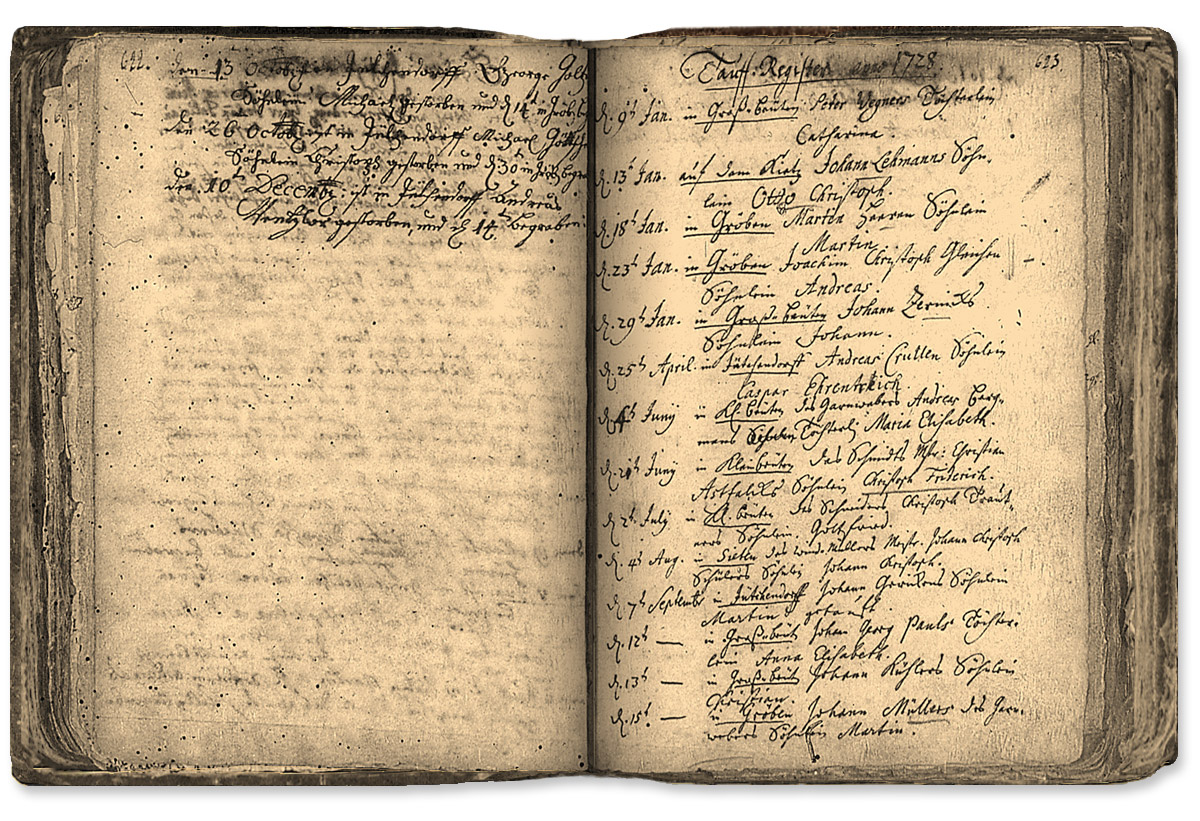 622.
den 13 Octobr: in Jütchendorff George
Söhnlein Michael gestorben und d 14t
den 26 Octobr ist in Jütchendorff Michael
Söhnlein Christoph gestorben und d 30t
den 10t Decembr: ist in Jütchendorff Andreas
gestorben und d 14t begraben.
Tauff-Register anno 1728.
623.
d. 9t Jan. in Groß-beuten Peter Wegners Töchterlein
Catharina.
d. 13t Jan. auf dem Kietz Johann Lehmanns Söhn-
lein Otto Christoph.
d. 18t Jan. in Gröben Martin Heeren Söhnlein
Martin.
d. 23t Jan. in Gröben Joachim Christoph Gleichen
Söhnlein Andreas.
d. 29t Jan. in Groß-beuten Johann
Söhnlein Johann.
d. 25t April. in Jütchendorff Andreas Crullen Söhnlein
Caspar Ehrentreich.
Juny in Kl. beuten des Garnwebers Andreas Berg-
mans Töchterl: Maria Elisabeth.
Juny in Kleinbeuten des Schmidts Mstr: Christian
Söhnlein Christoph Friderich.
d. 2t July in Kl. beuten des Schneiders Christoph Traut-
ners Söhnlein Gottfried.
d. 4t Aug. in Sieten des wind-Müllers Mstr. Johann Christoph
Schülers Söhnlein Johann Christoph.
d. 7t Septembr in Jütchendorff Johann Söhnlein
Martin getauft.
d. 12t — in Groß-beut. Johan Georg Pauls Töchter-
lein Anna Elisabeth.
d. 13t — in Groß-beut. Johann Kühlers Söhnlein
Christian.
d. 15t — in Gröben Johann Müllers des Garn-
webers Söhnlein Martin.